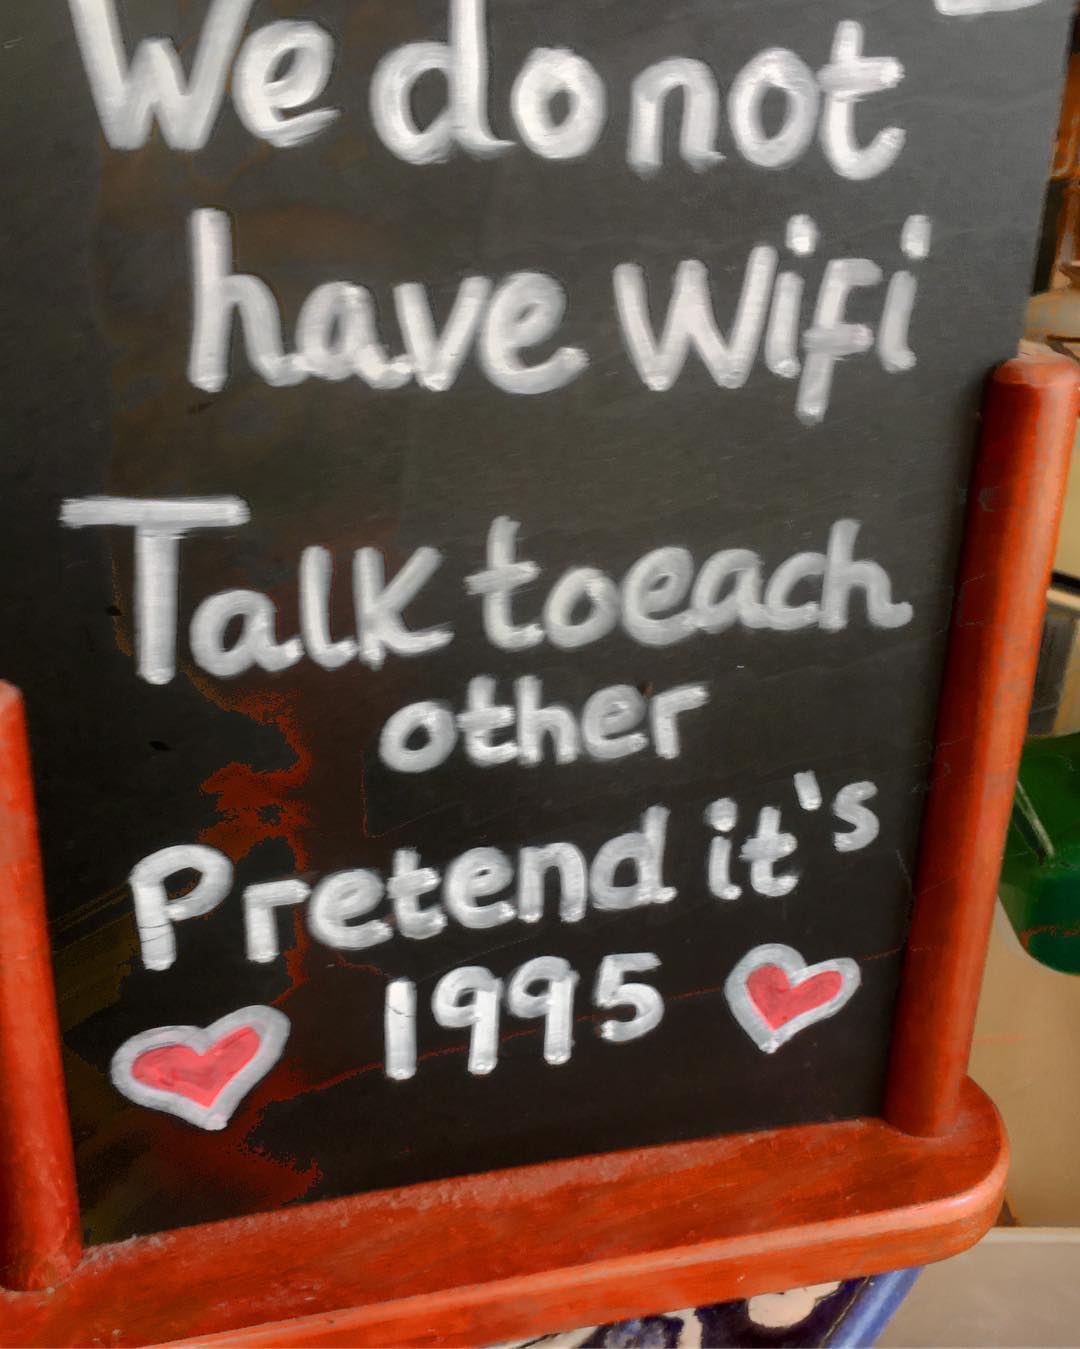 We do not
have Wifi
Talk to each
other
Pretend it's
1995